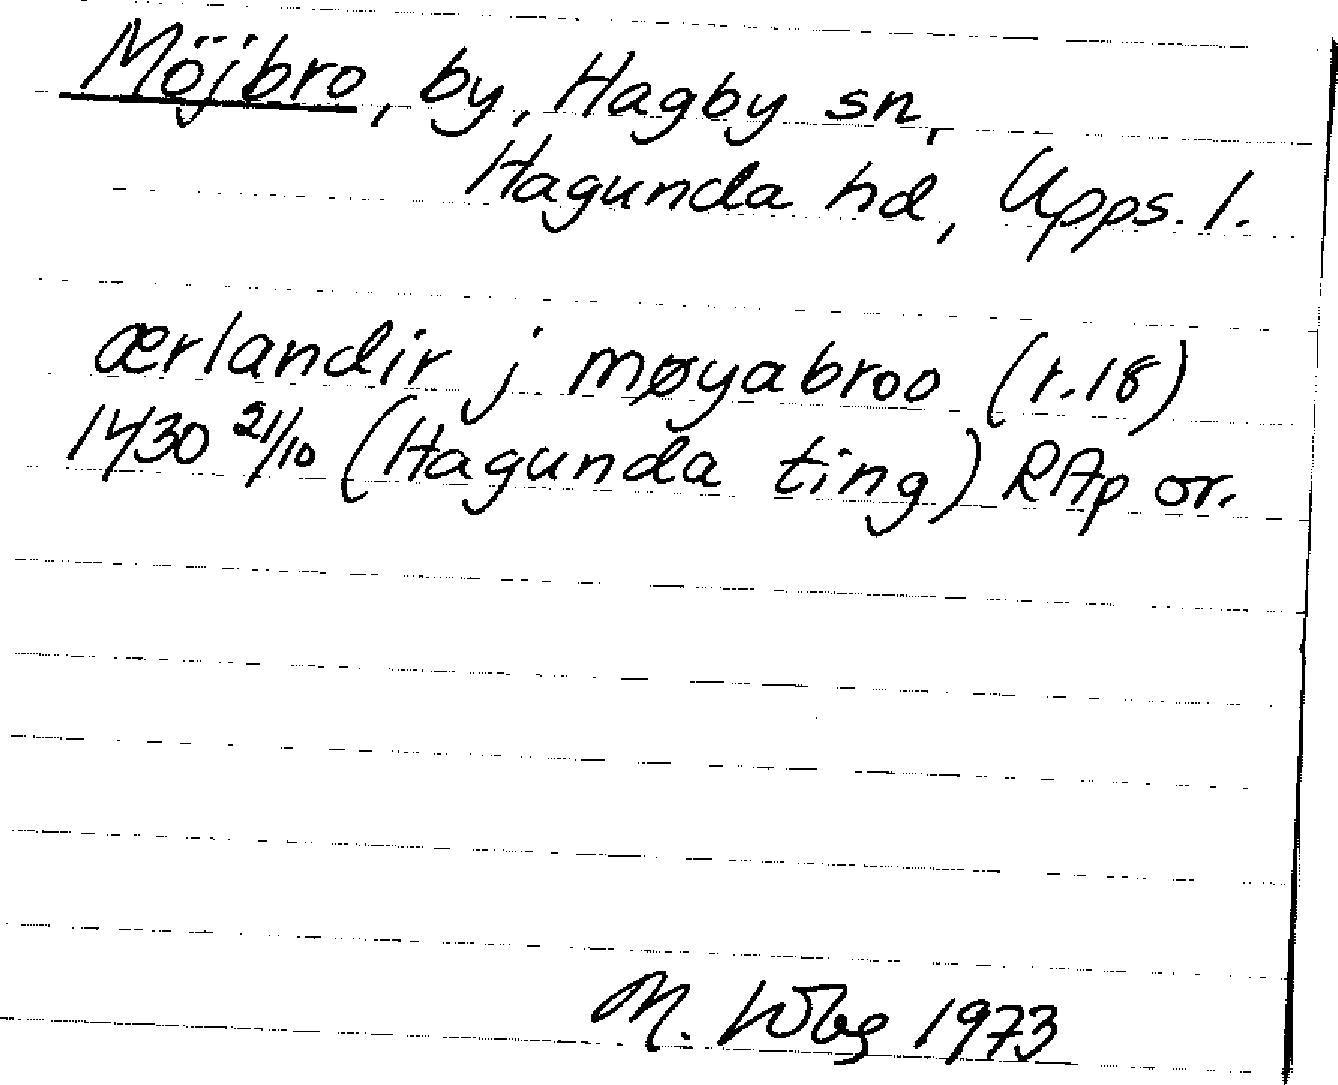 Möjbro, by, Hagby sn,
Hagunda hd, Upps. l.
ærlandir j møyabroo (r.18)
1430 21/10 (Hagunda ting) RAp or.
M. 1973